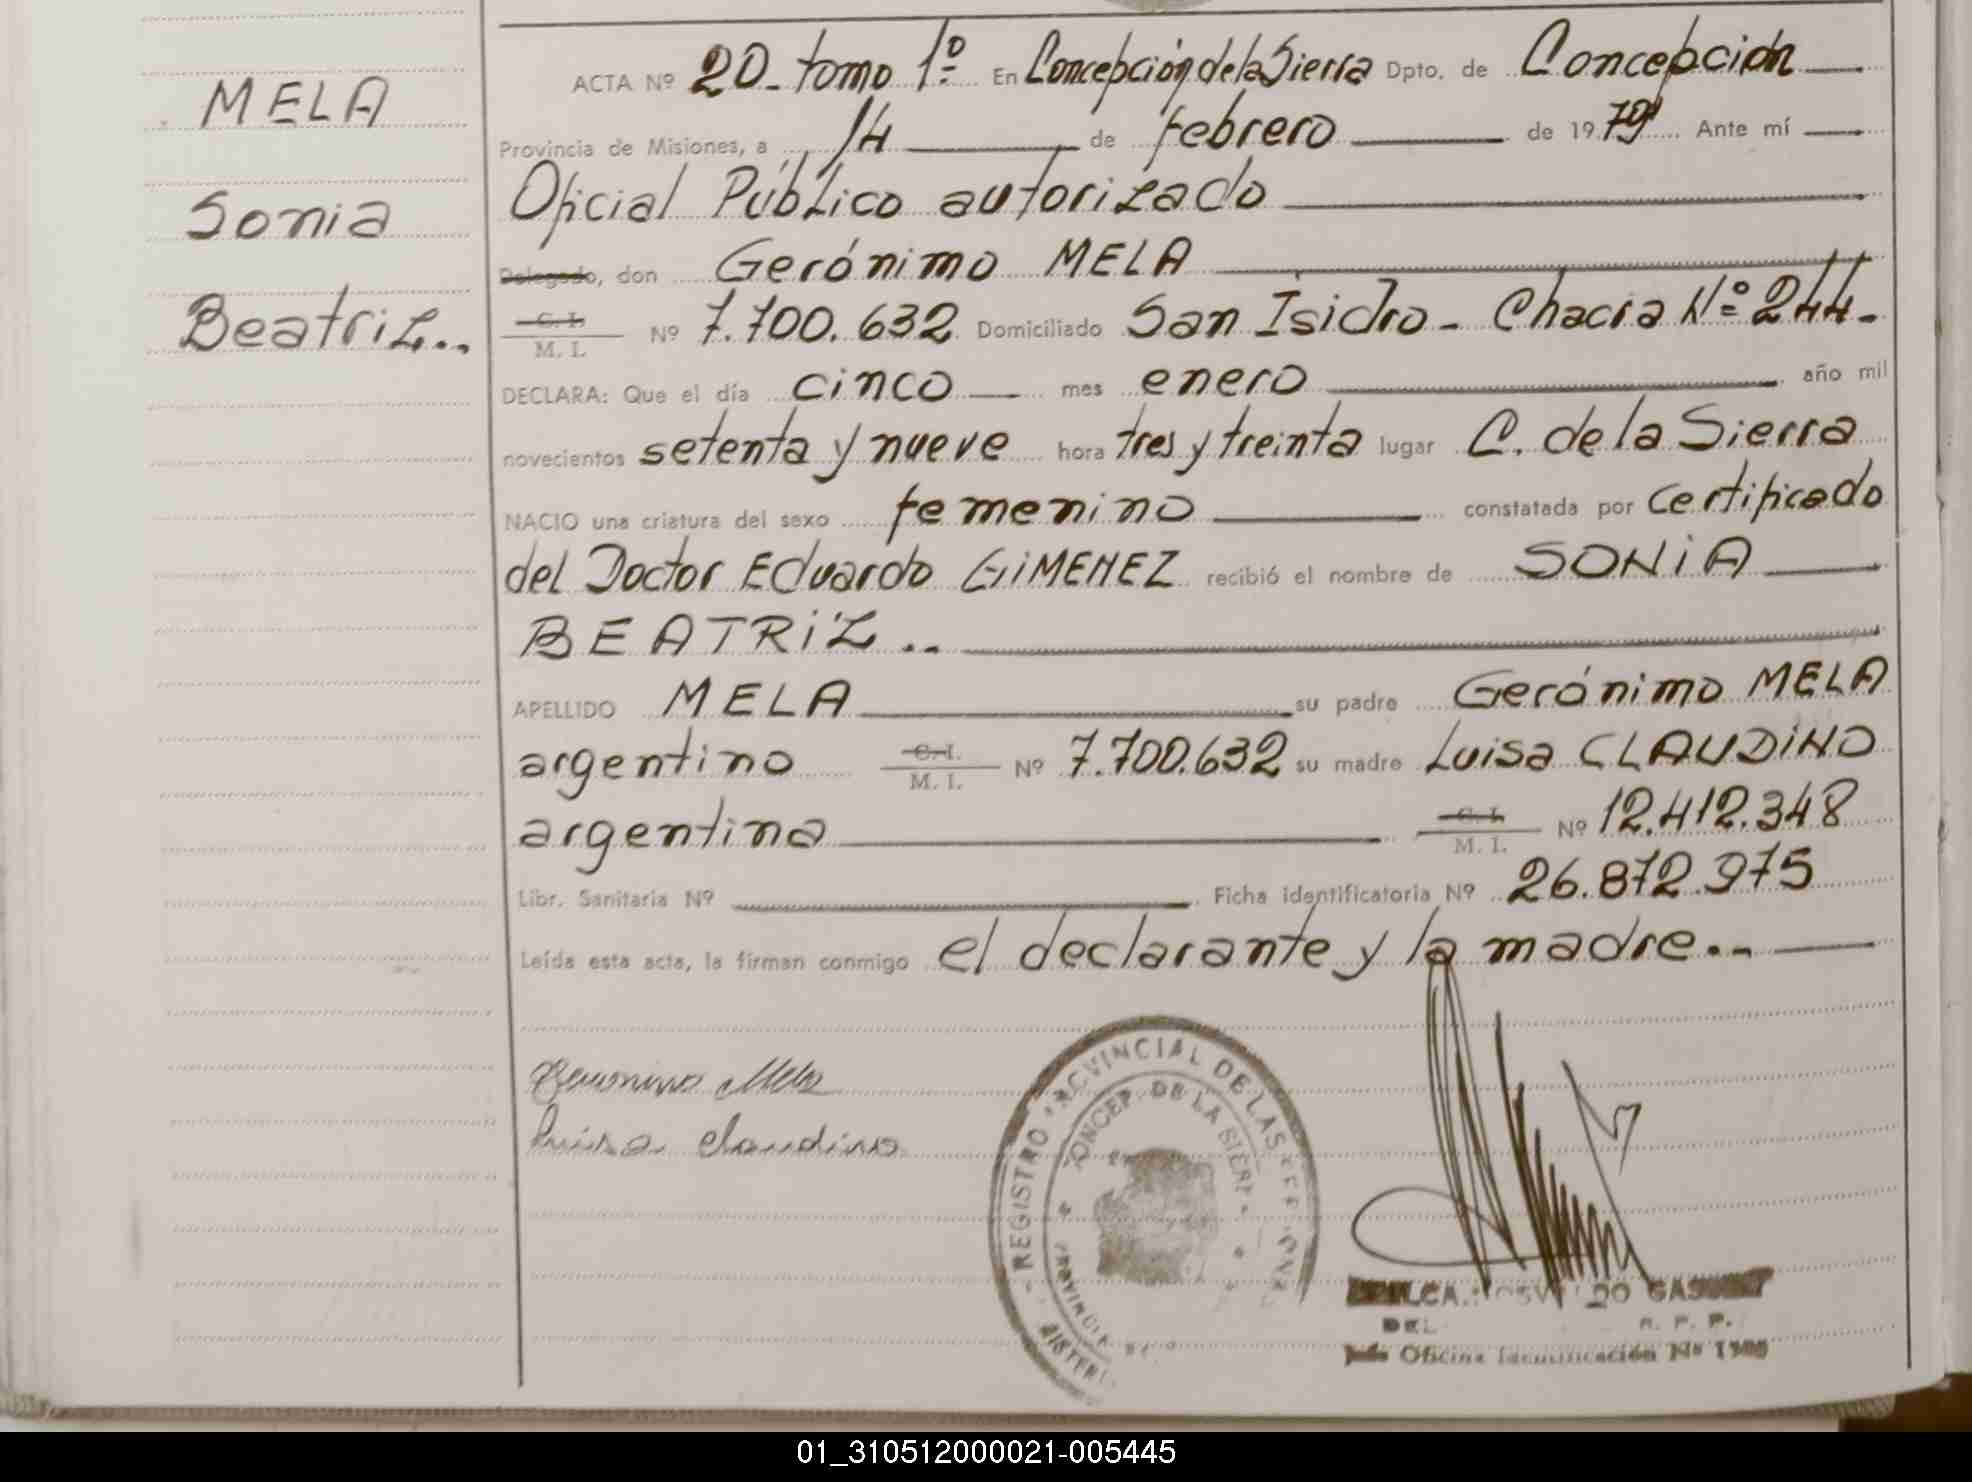 MELA
Sonia
Beatriz..
ACTA Nº 20 - tomo 1º En Concepción de la Sierra Dpto. de Concepción
Provincia de Misiones, a 14 de febrero de 1979 Ante mí
Oficial Público autorizado
Delegado, don Gerónimo MELA
C. I. M. I. Nº 7.700.632 Domiciliado San Isidro - Chacra Nº 244.-
DECLARA: Que el día cinco mes enero año mil
novecientos setenta y nueve hora tres y treinta lugar C. de la Sierra
NACIO una criatura del sexo femenino constatada por Certificado
del Doctor Eduardo GIMENEZ recibió el nombre de SONIA
BEATRIZ..
APELLIDO MELA su padre Gerónimo MELA
argentino C. I. M. I. Nº 7.700.632 su madre Luisa CLAUDINO
argentina C. I. M. I. Nº 12.412.348
Libr. Sanitaria Nº Ficha identificatoria Nº 26.872.975
Leída esta acta, la firman conmigo el declarante y la madre..
Geronimo Mela
Luisa Claudino
REGISTRO PROVINCIAL DE LAS
CONCEP. DE LA SIERRA
PROVINCIA
DEL
Jefe Oficina Identificación Nº
01_310512000021-005445